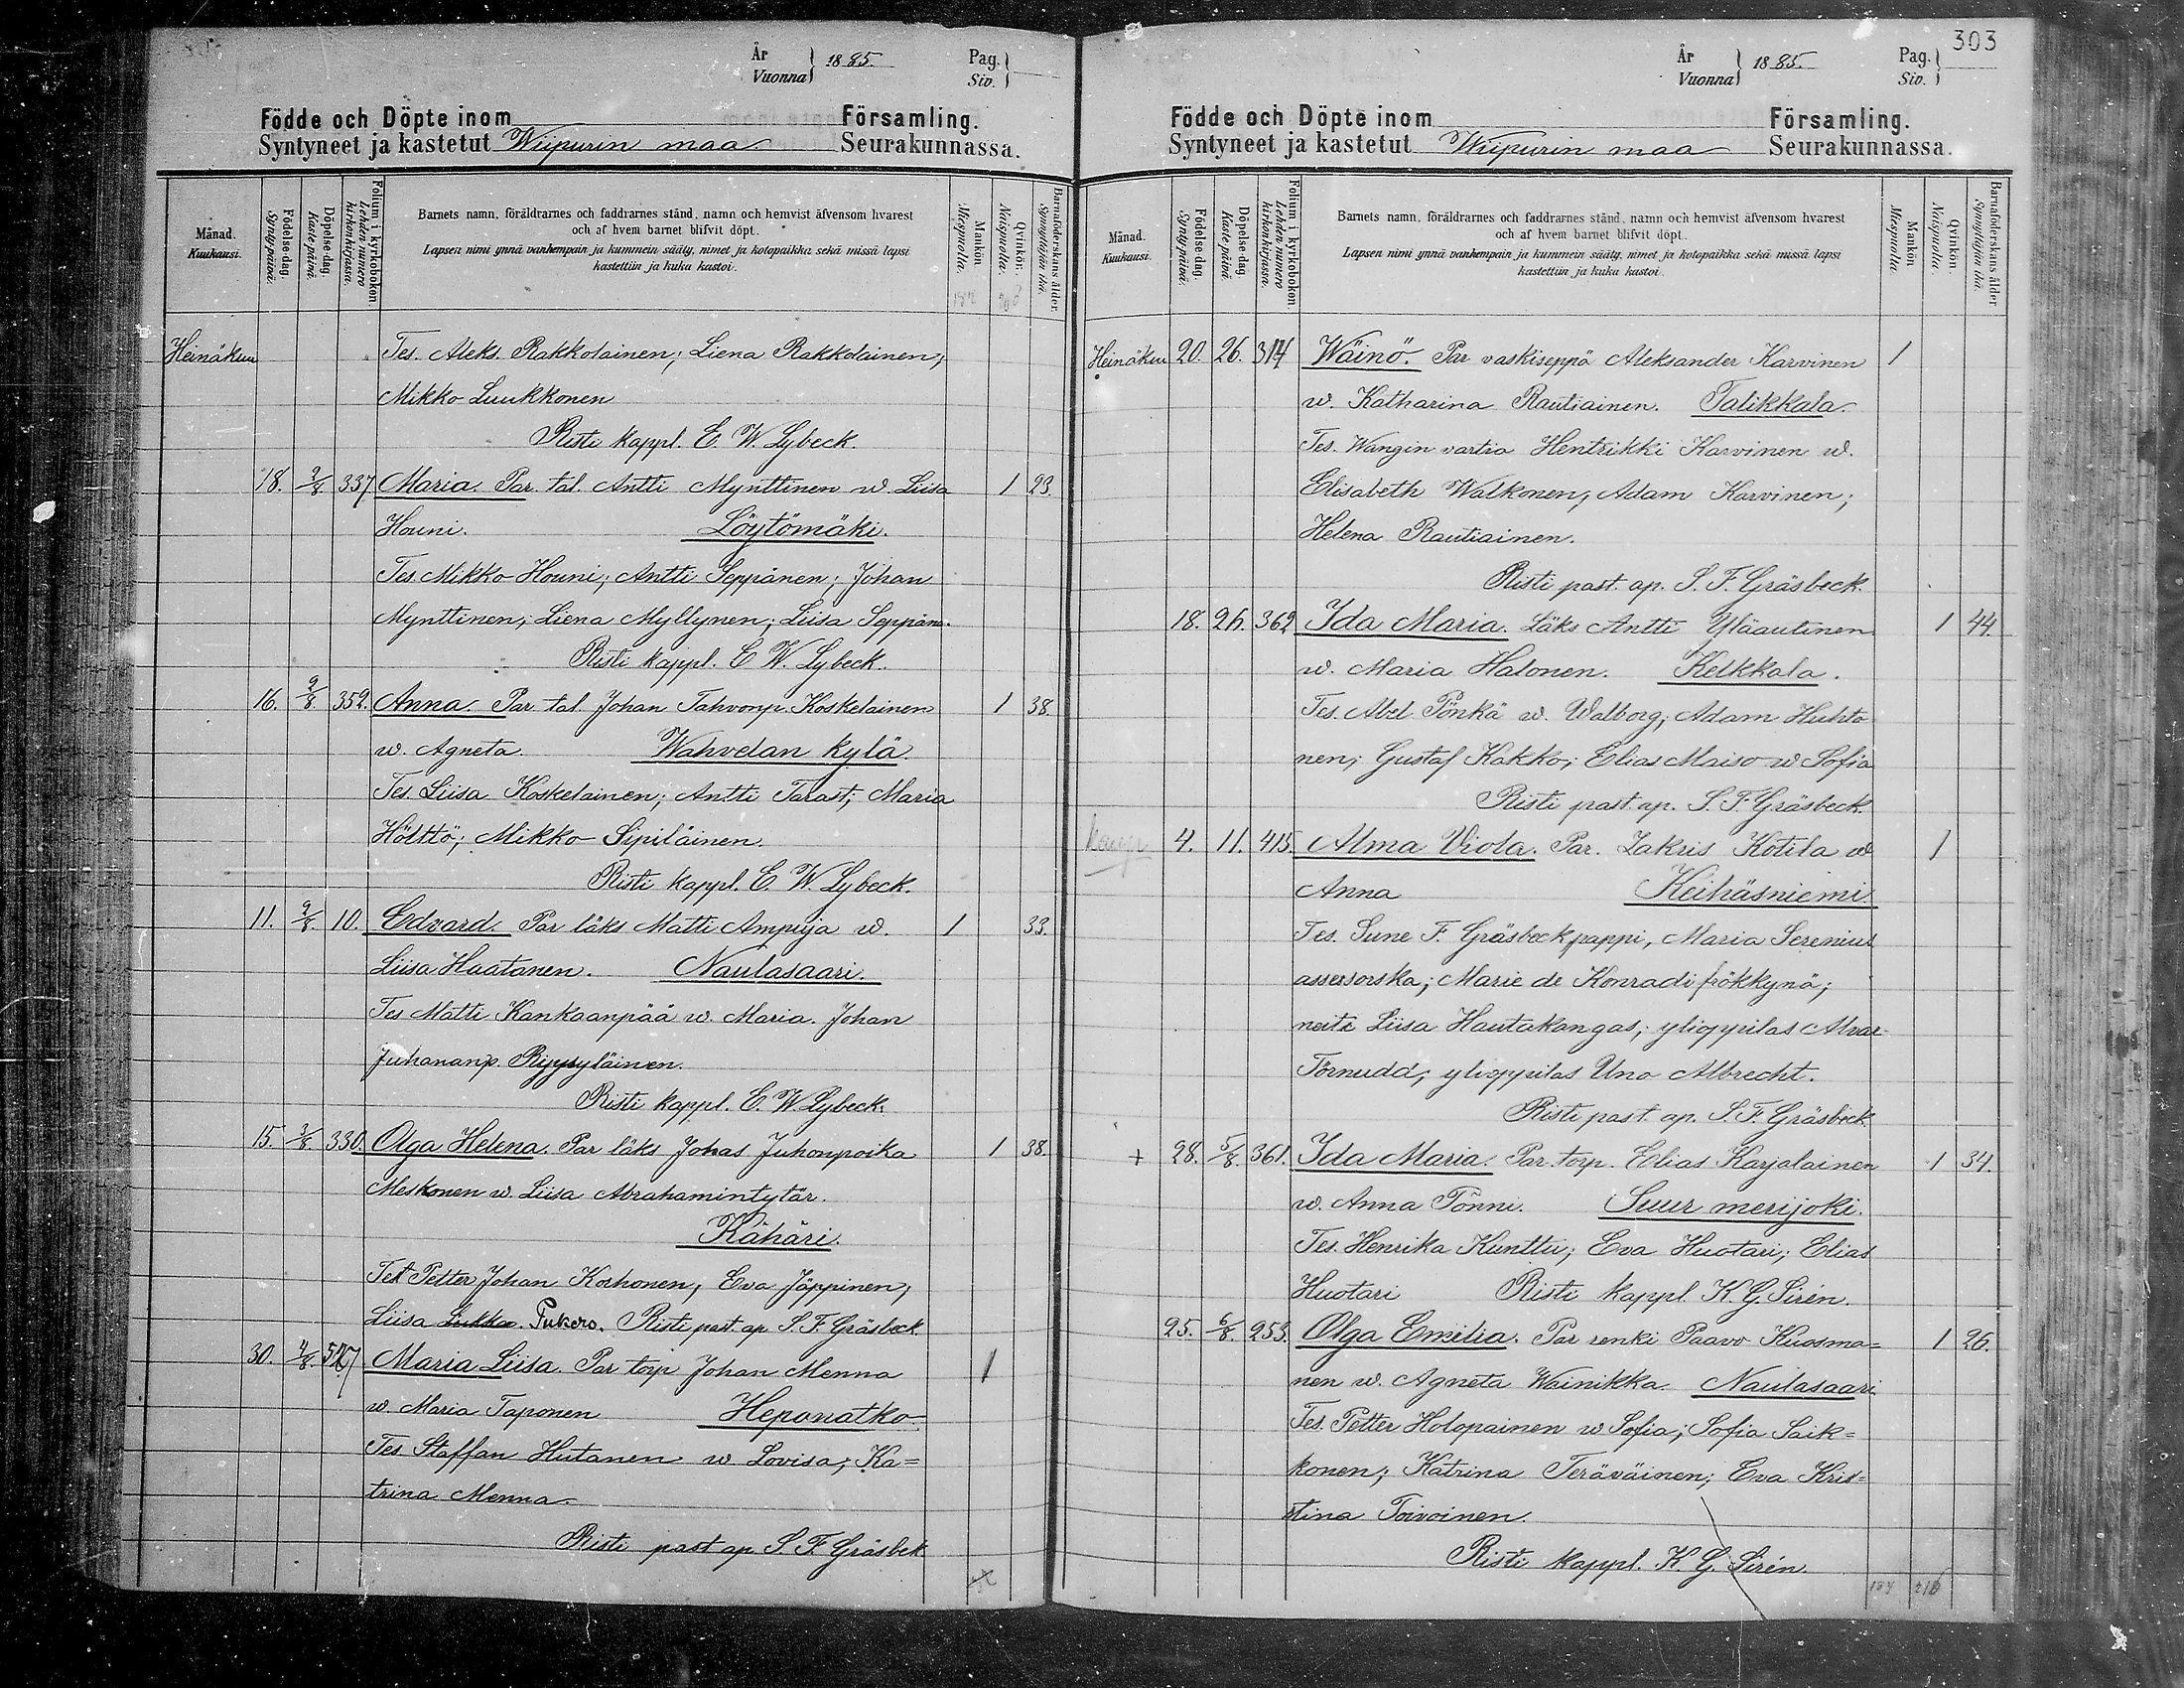 År
Vuonna } 1885.
Pag.
Siv. }
Födde och Döpte inom Församling.
Syntyneet ja kastetut Wiipurin maa Seurakunnassa.
Månad.
Kuukausi.
Födelse-dag.
Synty-päivä.
Döpelse-dag.
Kaste päivä.
Folium i kyrkobokon.
Lehden numero
kirkonkirjassa.
Barnets namn, föräldrarnes och faddrarnes stånd, namn och hemvist äfvensom hvarest
och af hvem barnet blifvit döpt.
Lapsen nimi ynnä vanhempain ja kummein sääty, nimet ja kotopaikka sekä missä lapsi
kastettiin ja kuka kastoi.
Mankön.
Miespuolta.
Qvinkön.
Naispuolta.
Barnaföderskans ålder.
Synnyttäjän ikä.
Heinäkuu Tes. Aleks. Rakkolainen; Liena Rakkolainen;
Mikko Luukkonen
Risti kappl. E. W. Lybeck.
18. 2/8. 337 Maria. Par. tal. Antti Mynttinen w. Liisa 1 23.
Houni. Löytömäki.
Tes. Mikko Houni; Antti Seppänen; Johan
Mynttinen; Liena Myllynen; Liisa Seppäne.
Risti kappl. E W. Lybeck.
16. 2/8. 352. Anna. Par. tal. Johan Tahvonp. Koskelainen 1 38.
w. Agneta. Wahvelan kylä.
Tes. Liisa Koskelainen; Antti Tarast; Maria
Hölttö; Mikko Sipiläinen.
Risti kappl. E. W. Lybeck.
11. 2/8. 10. Edvard. Par läks Matti Ampuja w. 1 33.
Liisa Haatanen. Naulasaari.
Tes Matti Kankaanpää w. Maria. Johan
Juhananp. Ryysyläinen.
Risti kappl. E. W. Lybeck.
15. 3/8. 330. Olga Helena. Par läks Johas Juhonpoika 1 38.
Meskonen w. Liisa Abrahamintytär.
Kähäri.
Tes Petter Johan Korhonen, Eva Jäppinen,
Liisa Lukka. Pukero. Risti past. ap S. F. Gräsbeck.
30. 4/8. Maria Liisa. Par torp Johan Menna 1
w. Maria Taponen Heponatko.
Tes Staffan Hutanen w Lovisa; Ka=
trina Menna.
Risti past ap S. F. Gräsbek
303
År
Vuonna } 1885.
Pag.
Siv. }
Födde och Döpte inom Församling.
Syntyneet ja kastetut Wiipurin maa Seurakunnassa.
Månad.
Kuukausi.
Födelse-dag.
Synty päivä.
Döpelse-dag
Kaste päivä.
Folium i kyrkobokon.
Lehden numero
kirkonkirjassa.
Barnets namn, föräldrarnes och faddrarnes stånd, namn och hemvist äfvensom hvarest
och af hvem barnet blifvit döpt.
Lapsen nimi ynnä vanhempain ja kummein sääty, nimet ja kotopaikka sekä missä lapsi
kastettiin ja kuka kastoi.
Mankön
Miespuolta.
Qvinkön.
Naispuolta.
Barnaföderskans ålder
Synnyttäjän ikä.
Heinäkuu 20. 26. 314 Wäinö. Par vaskiseppä Aleksander Karvinen 1
w. Katharina Rautiainen. Talikkala.
Tes. Wangin vartia Hentrikki Karvinen w.
Elisabeth Walkonen; Adam Karvinen;
Helena Rautiainen.
Risti past. ap. S. F. Gräsbeck.
18. 26. 362 Ida Maria. Läks Antti Yläautinen 1 44.
w. Maria Halonen. Kelkkala.
Tes. Abel Pönkä w. Walborg; Adam Huhto
nen; Gustaf Kakko; Elias Maiso w Sofia
Risti past. ap. S. F. Gräsbeck.
4. 11. 415. Alma Viola. Par. Zakris Kotila w 1
Anna Keihäsniemi.
Tes. Sune F. Gräsbeck pappi, Maria Serenius
assessorska; Marie de Konradi frökkynä;
neiti Liisa Hautakangas; ylioppilas Alvar
Törnudd; ylioppilas Uno Albrecht.
Risti past. ap. S. F. Gräsbeck.
+ 28. 5/8. 361. Ida Maria. Par. torp. Elias Karjalainen 1 34.
w. Anna Tönni. Suur merijoki.
Tes. Henrika Kunttu; Eva Huotari; Elias
Huotari Risti kappl. K. G. Sirén.
25. 6/8. 253. Olga Emilia. Par renki Paavo Kuosma= 1 26.
nen w. Agneta Wainikka. Naulasaari.
Tes. Petter Holopainen w Sofia; Sofia Saik=
konen; Katrina Teräväinen; Eva Kris=
stina Toivoinen.
Risti kappl. K. G. Sirén.